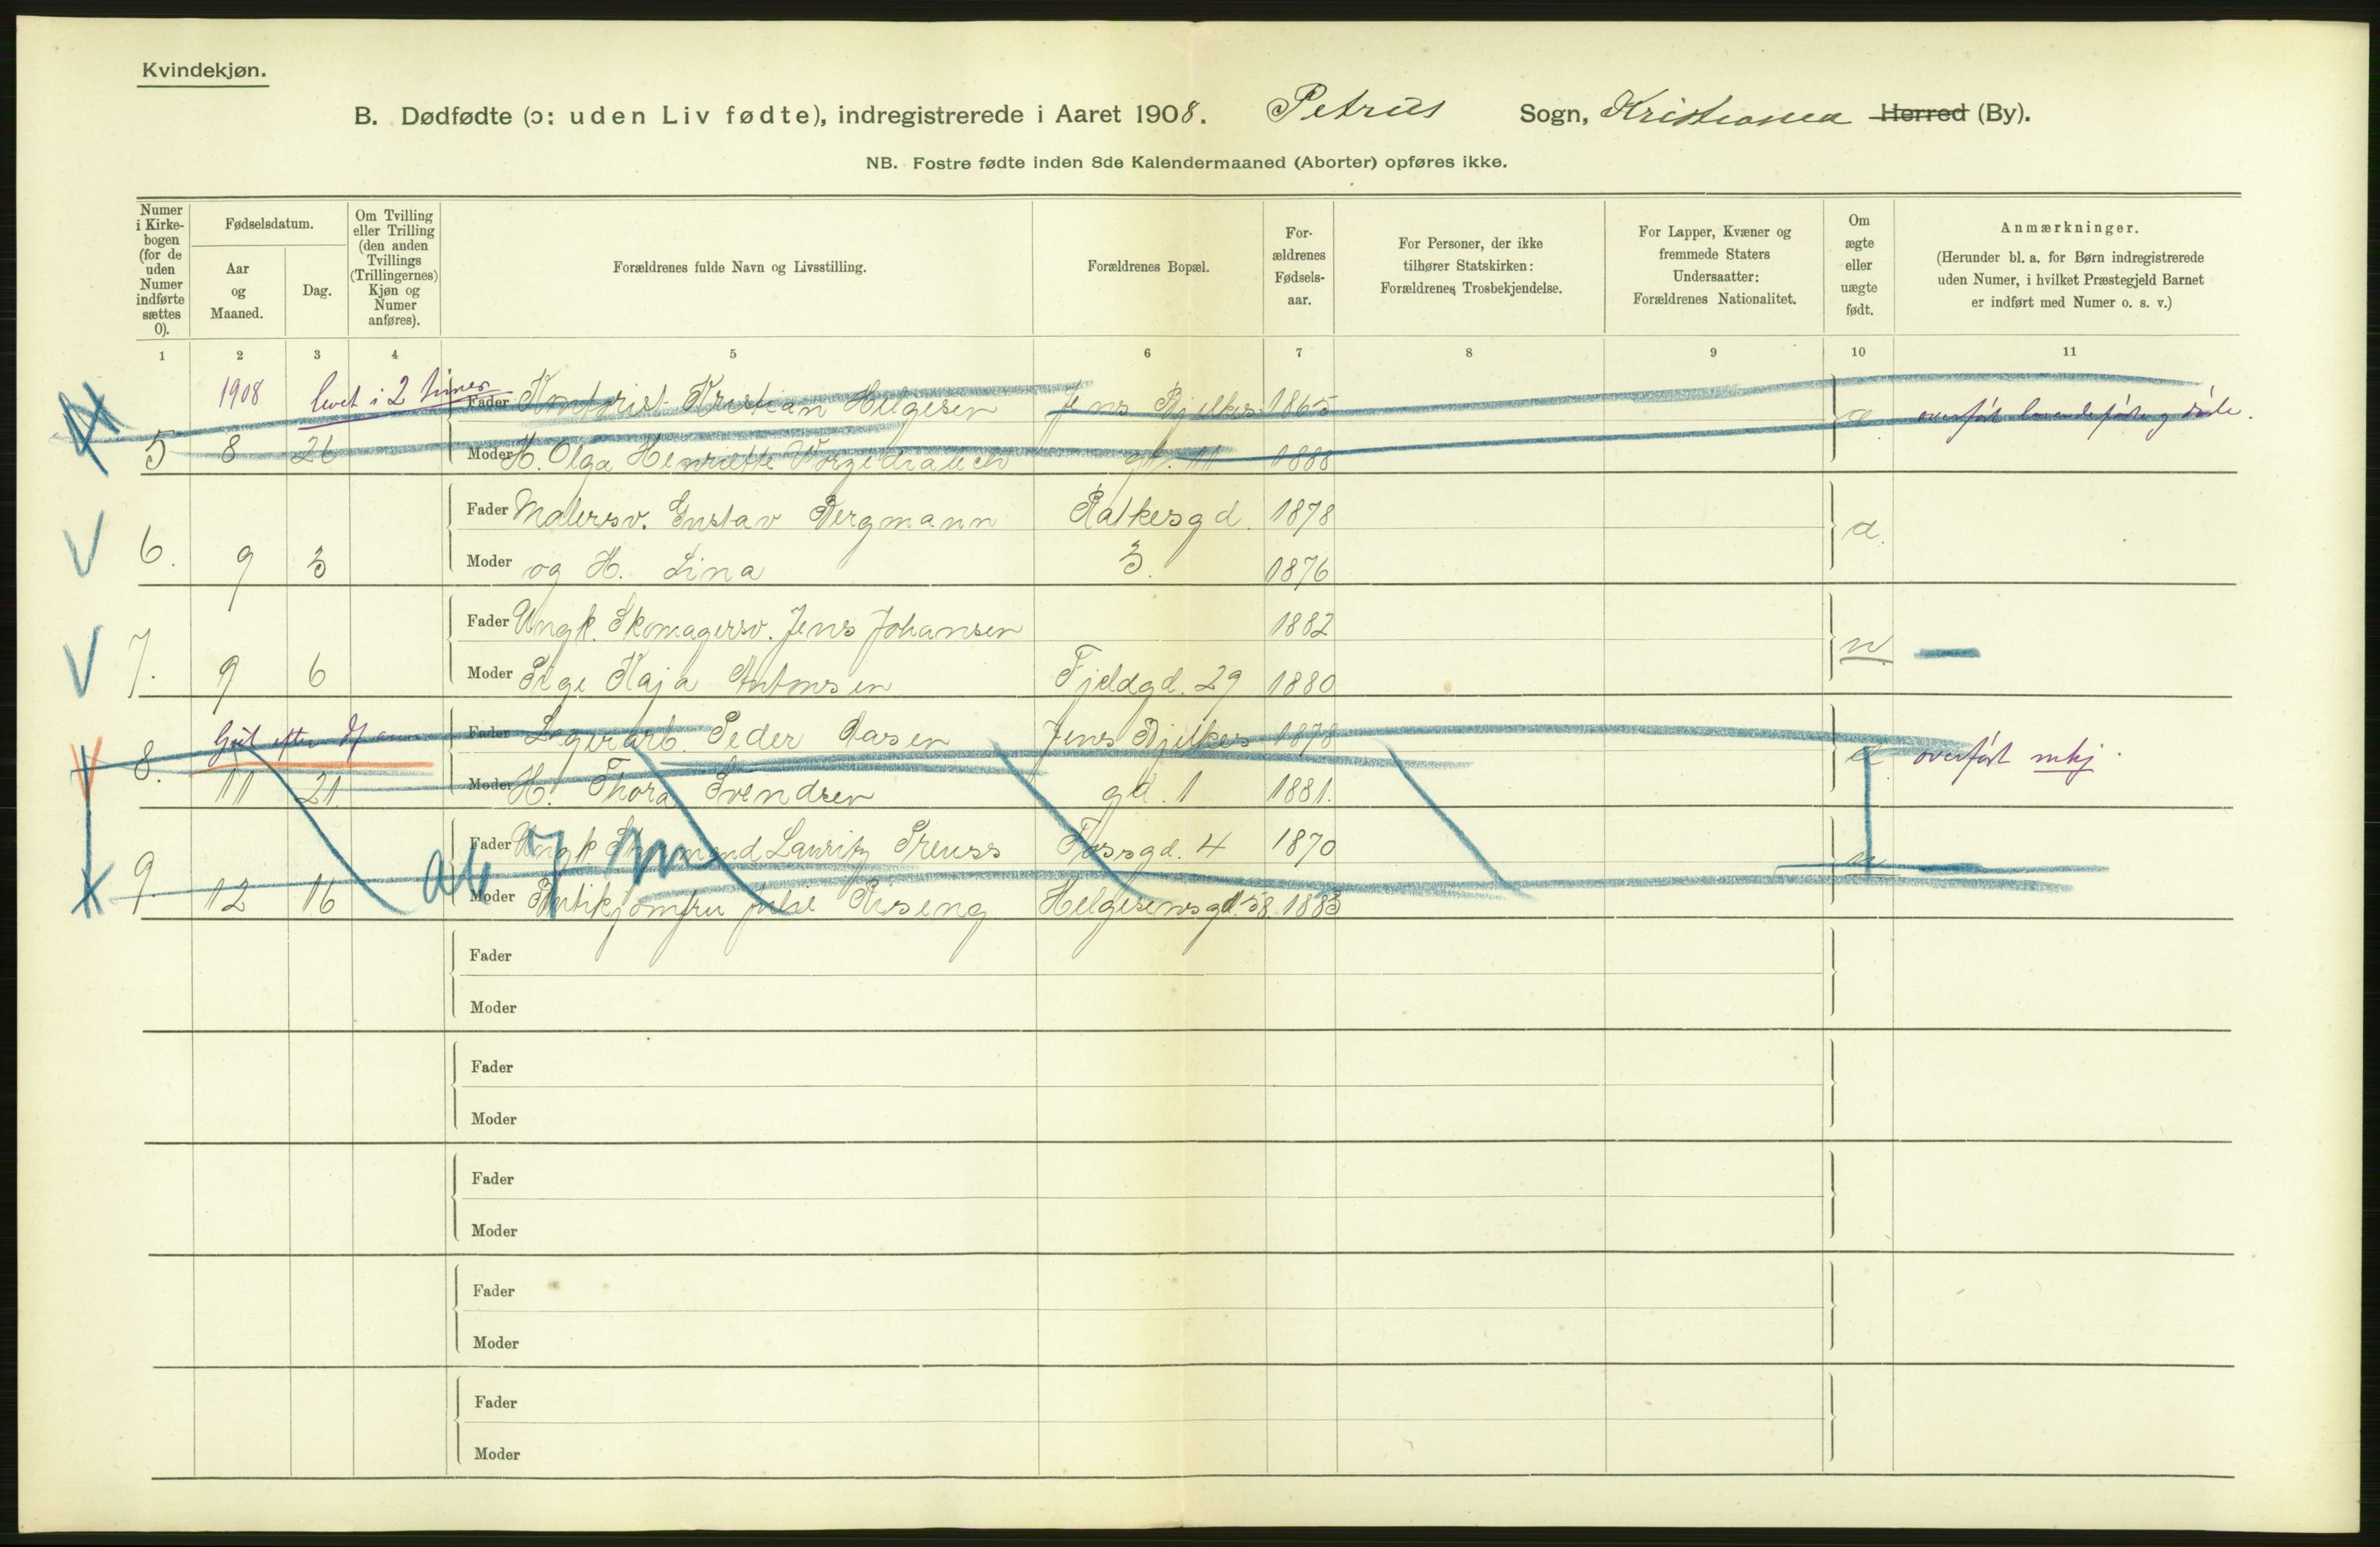 Kvindekjøn.
B. Dødfødte (ɔ: uden Liv fødte), indregistrerede i Aaret 1908. Petrus Sogn, Kristiania Herred (By).
NB. Fostre fødte inden 8de Kalendermaaned (Aborter) opføres ikke.
Numer i Kirkebogen (for de uden Numer indførte sættes 0).
Fødselsdatum.
Aar og Maaned.
Dag.
Om Tvilling eller Trilling (den anden Tvillings (Trillingernes) Kjøn og Numer anføres).
Forældrenes fulde Navn og Livsstilling.
Forældrenes Bopæl.
For-ældrenes Fødsels-aar.
For Personer, der ikke tilhører Statskirken: Forældrenes Trosbekjendelse.
For Lapper, Kvæner og fremmede Staters Undersaatter: Forældrenes Nationalitet.
Om ægte eller uægte født.
Anmærkninger.
(Herunder bl. a. for Børn indregistrerede uden Numer, i hvilket Præstegjeld Barnet er indført med Numer o. s. v.)
1 2 3 4 5 6 7 8 9 10 11
1908 levet i 2 timer
Fader Kontorist Kristian Helgesen Jens Bjelkes 1865 æ overført levendefødte og døde.
5 8 26 Moder H. Olga Henriette gt. 11 1888
Fader Malersv. Gustav Bergmann Falkesgd. 1878 æ.
6. 9 3 Moder og H. Lina 3. 1876
Fader Ungk. Skomagersv. Jens Johansen 1882 u.
7. 9 6 Moder Pige Kaja Antonsen Fjeldgd. 29 1880
Fader Lagerarb. Peder Aasen Jens Bjelkes 1878 æ overført mkj.
8. 11 21 Moder H. Thora Svendsen gd. 1 1881.
Fader Ungk. Lauritz Preuss Fossgd. 4 1870 u
9 12 16 Moder Butikjomfru Julie Riseng Helgesensgd. 58. 1883
Fader
Moder
Fader
Moder
Fader
Moder
Fader
Moder
Fader
Moder